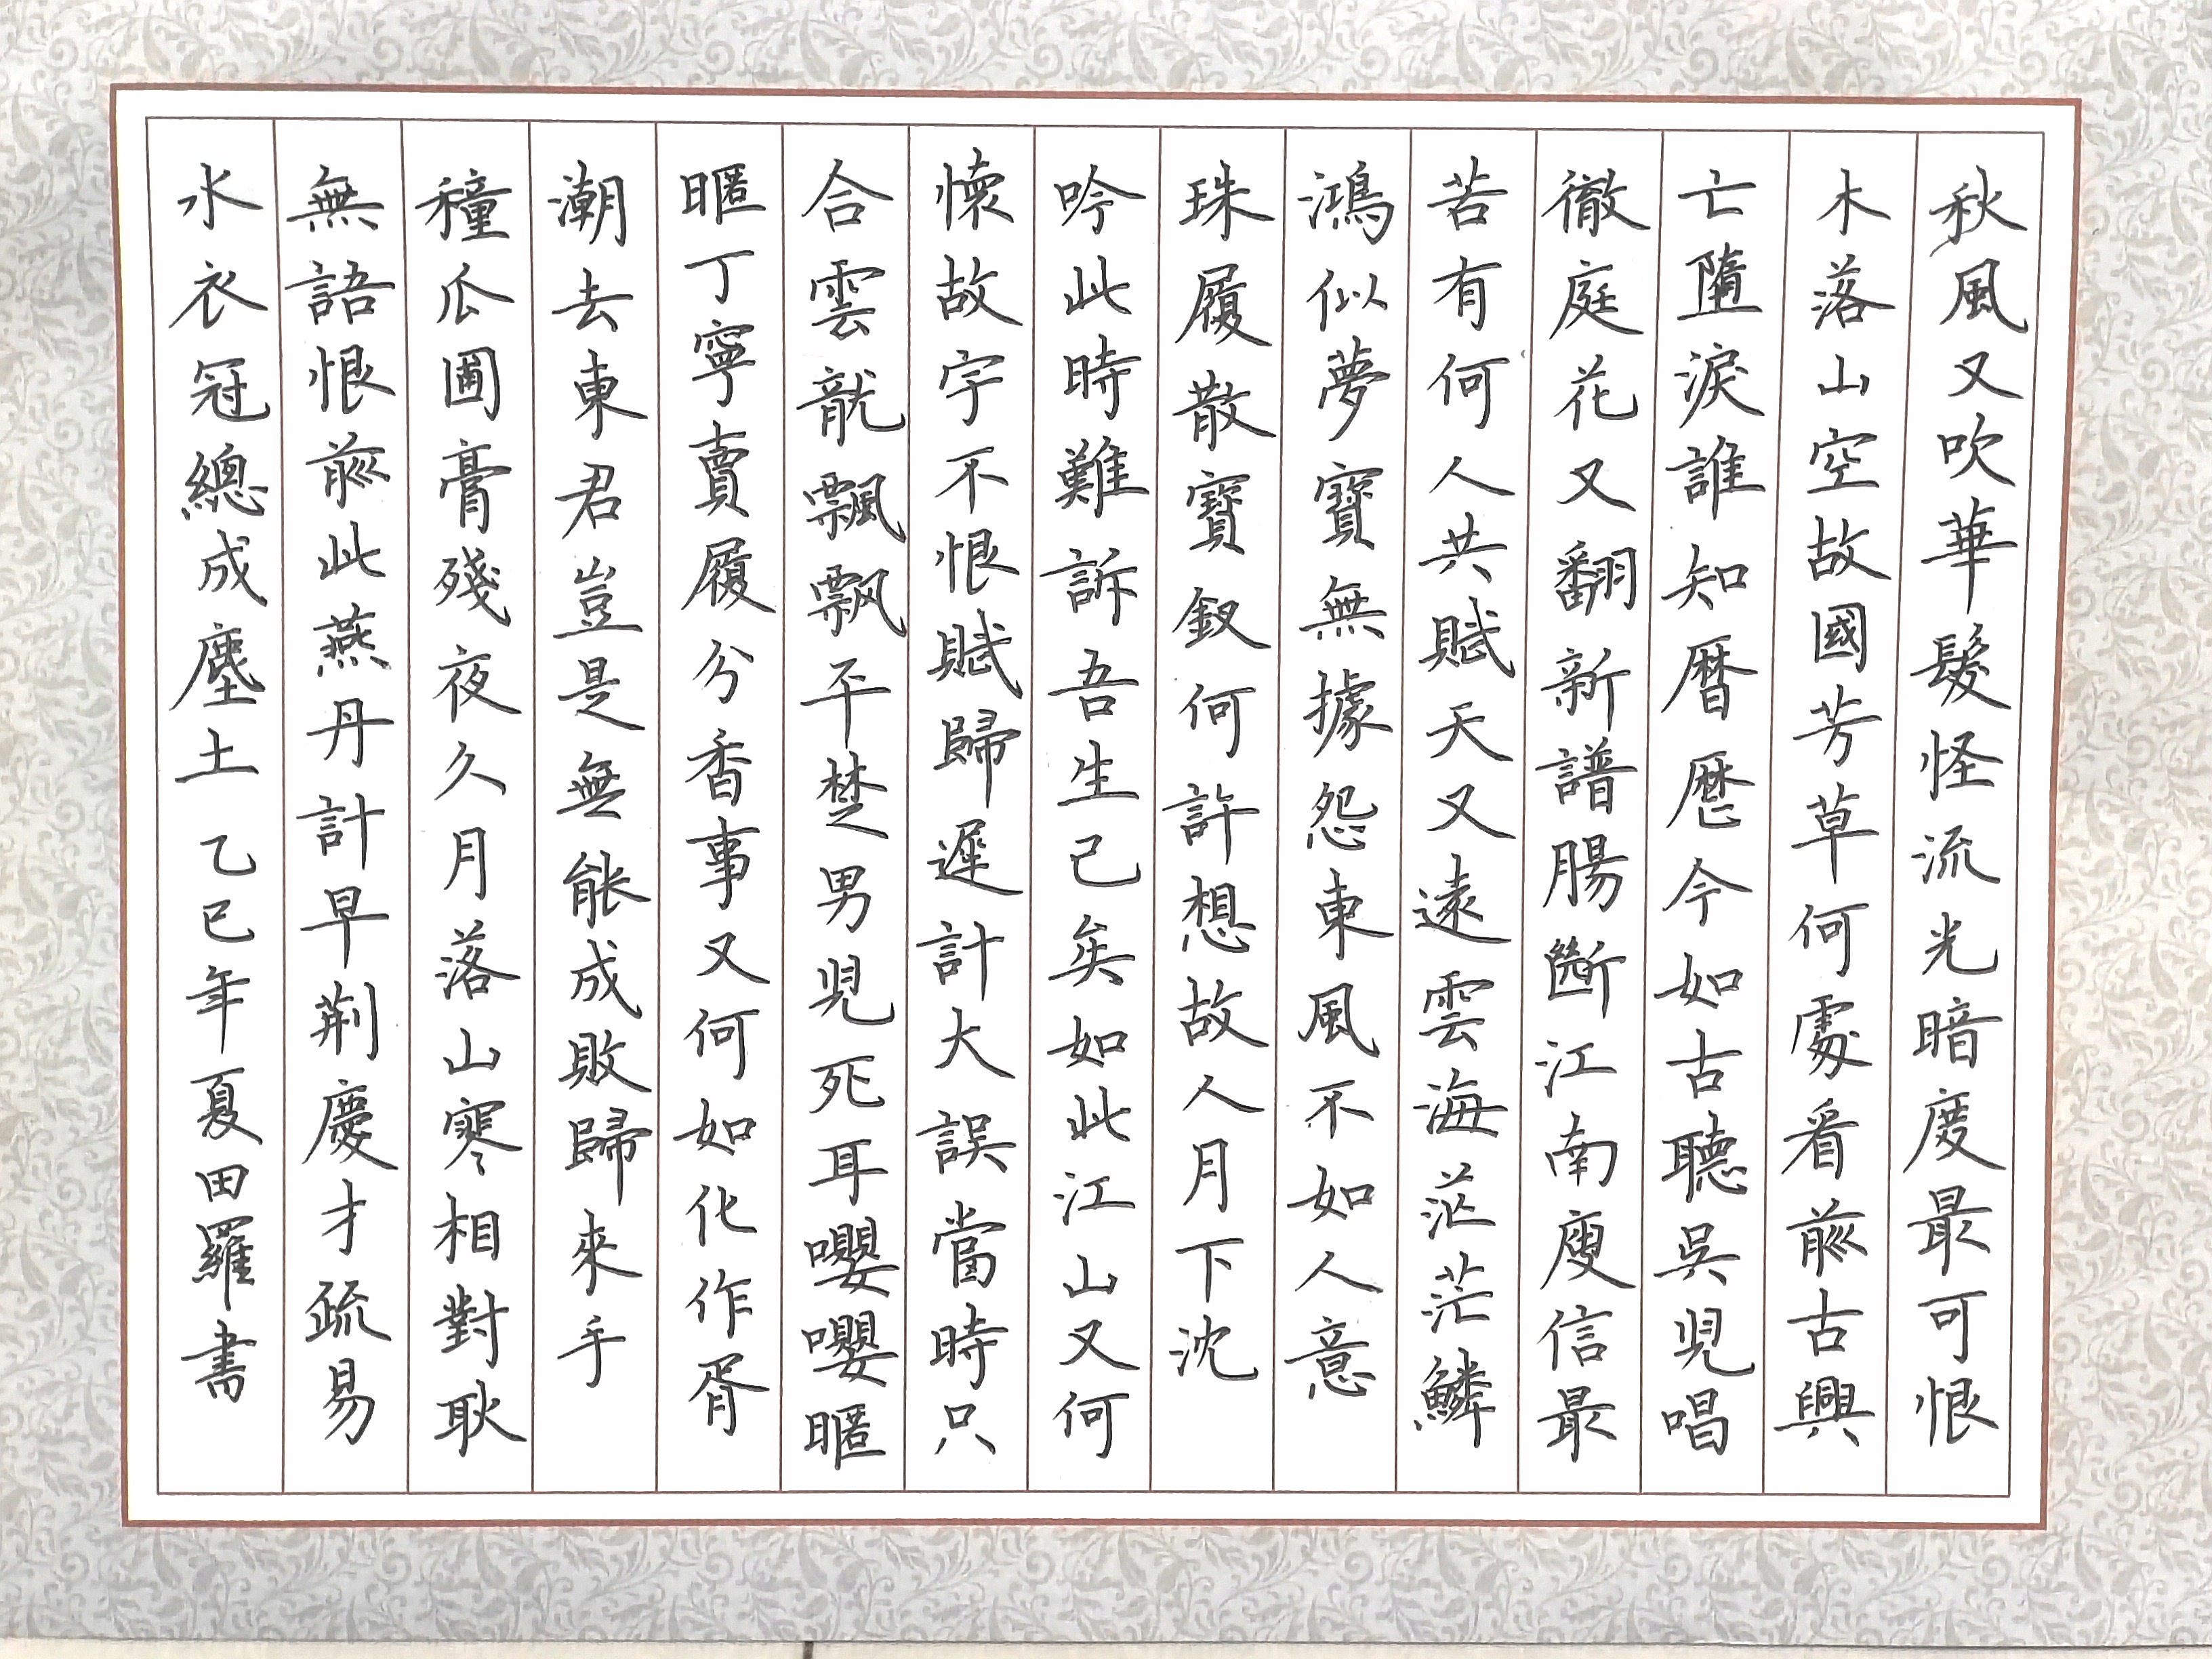 秋風又吹華髮怪流光暗度最可恨
木落山空故國芳草何處看前古興
亡墮淚誰知曆歷今如古聽吳兒唱
徹庭花又翻新譜腸斷江南庾信最
苦有何人共賦天又遠雲海茫茫鱗
鴻似夢寶無據怨東風不如人意
珠履散寶釵何許想故人月下沈
吟此時難訴吾生已矣如此江山又何
懷故宇不恨賦歸遲計大誤當時只
合雲龍飄飄平楚男兒死耳嚶嚶暱
暱丁寧賣履分香事又何如化作胥
潮去東君豈是無能成敗歸來手
種瓜圃膏殘夜久月落山寒相對耿
無語恨前此燕丹計早荆慶才疏易
水衣冠總成塵土 乙巳年夏田羅書